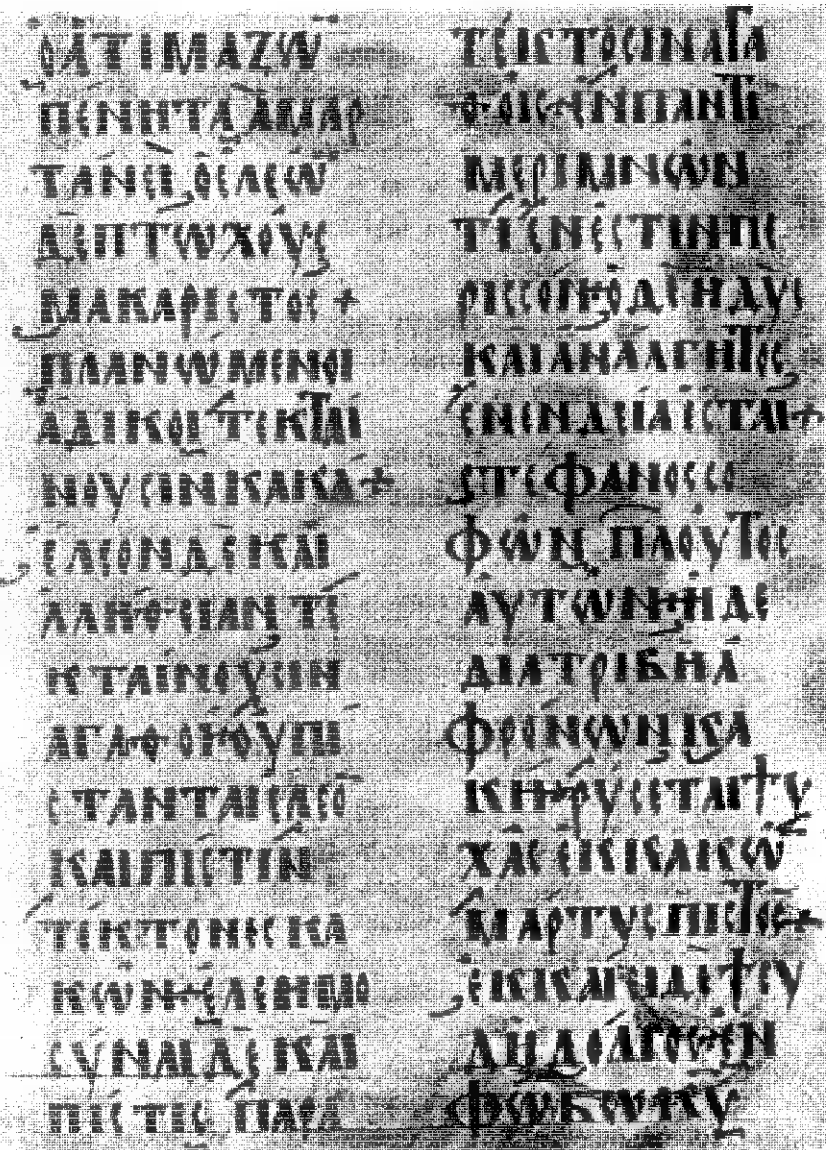 ΟΑΤΙΜΑΖῶ
ΠΕΝΗΤΑ ΑΜΑΡ
ΤΑΝΕΙ ΟΕΛΕῶ
ΔΕΠΤωΧΟΥϹ
ΜΑΚΑΡΙϹΤΟϹ +
ΠΛΑΝωΜΕΝΟΙ
ΑΔΙΚΟΙ ΤΕΚΤΑΙ
ΝΟΥϹΙΝ ΚΑΚΑ +
ΕΛΕΟΝ ΔΕ ΚΑΙ
ΑΛΗΘΕΙΑΝ ΤΕ
ΚΤΑΙΝΟΥϹΙΝ
ΑΓΑΘΟΙ ΟΥΠΙ
ϹΤΑΝΤΑΙ ΕΛΕΟ̄
ΚΑΙ ΠΙϹΤΙΝ
ΤΕΚΤΟΝΕϹ ΚΑ
ΚωΝ + ΕΛΕΗΜΟ
ϹΥΝΑΙ ΔΕ ΚΑΙ
ΠΙϹΤΙϹ ΠΑΡΑ
ΤΕΚΤΟϹΙΝ ΑΓΑ
ΘΟΙϹ + ΕΝ ΠΑΝΤΙ
ΜΕΡΙΜΝωΝ
ΤΙ ΕΝΕϹΤΙΝ ΠΕ
ΡΙϹϹΟΝ + ΟΔΕ ΗΔΥϹ
ΚΑΙ ΑΝΑΛΓΗΤΟϹ
ΕΝ ΕΝΔΕΙΑ ΕϹΤΑΙ +
ϹΤΕΦΑΝΟϹ ϹΟ
ΦωΝ ΠΛΟΥΤΟϹ
ΑΥΤωΝ + Η ΔΕ
ΔΙΑΤΡΙΒΗ Α
ΦΡΟΝωΝ ΚΑ
ΚΗ + ΡΥϹΕΤΑΙ ΨΥ
ΧΑϹ ΕΚ ΚΑΚῶ
ΜΑΡΤΥϹ ΠΙϹΤΟϹ +
ΕΚΚΑΙΕΙ ΔΕ ΨΕΥ
ΔΗ ΔΟΛΙΟϹ + ΕΝ
ΦΟΒω Κ̄Ῡ